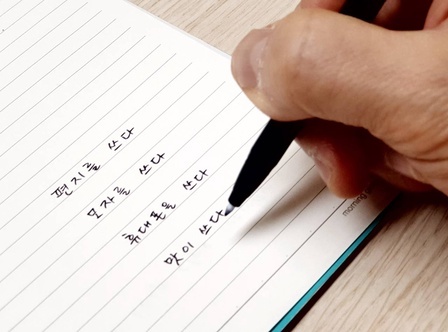 편지를 쓰다
모자를 쓰다
휴대폰을 쓰다
맛이 쓰다
morning